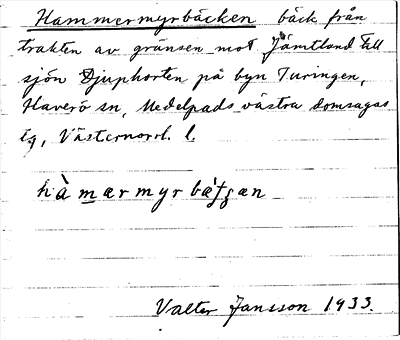 Hammermyrbäcken bäck från
trakten av gränsen mot Jämtland till
sjön Djuphorten på byn Turingen,
Haverö sn, Medelpads västra domsagas
tg, Västernorrl. l.
hàmærmyrbátʃan
Valter Jansson 1933.